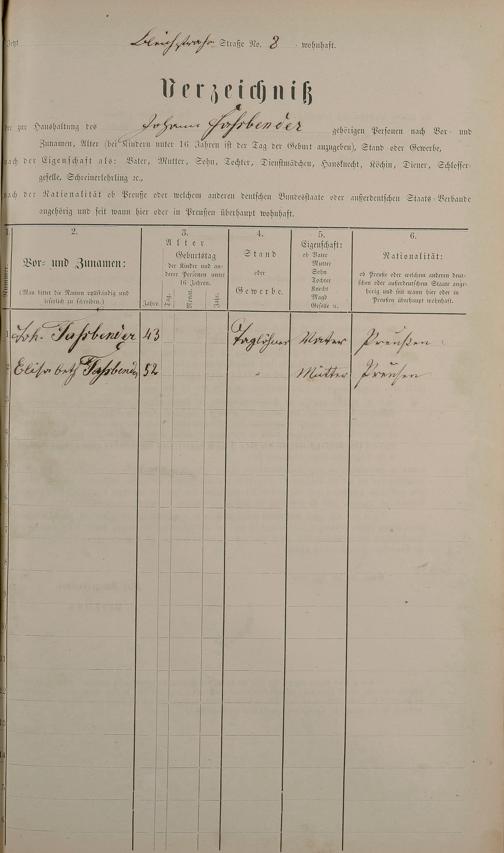 Jetzt Bleichstraße Straße No. 8 wohnhaft.
Verzeichniß
der zur Haushaltung des Johann Fassbender gehörigen Personen nach Vor- und
Zunamen, Alter (bei Kindern unter 16 Jahren ist der Tag der Geburt anzugeben), Stand oder Gewerbe,
nach der Eigenschaft als: Vater, Mutter, Sohn, Tochter, Dienstmädchen, Hausknecht, Köchin, Diener, Schlosser-
geselle, Schreinerlehrling ec.,
nach der Nationalität ob Preuße oder welchem anderen deutschen Bundesstaate oder außerdeutschen Staats-Verbande
angehörig und seit wann hier oder in Preußen überhaupt wohnhaft.
1.
Nummer.
2.
Vor- und Zunamen:
(Man bittet die Namen vollständig und
leserlich zu schreiben.)
3.
Alter
Geburtstag
der Kinder und an-
derer Personen unter
16 Jahren.
Jahre.
Tag.
Monat.
Jahr.
4.
Stand
oder
Gewerbe.
5.
Eigenschaft:
ob Vater
Mutter
Sohn
Tochter
Knecht
Magd
Geselle u.
6.
Nationalität:
ob Preuße oder welchem anderen deut-
schen oder außerdeutschen Staate ange-
hörig und seit wann hier oder in
Preußen überhaupt wohnhaft.
1 Joh. Fassbender 43 Taglöhner Vater Preußen
2 Elisabeth Fassbender 52 " Mutter Preußen